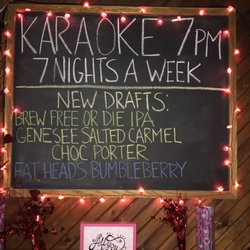 KARAOKE 7PM
7 NIGHTS A WEEK
NEW DRAFTS:
BREW FREE OR DIE IPA
GENESEE SALTED CARMEL
CHOC PORTER
FAT HEADS BUMBLEBERRY